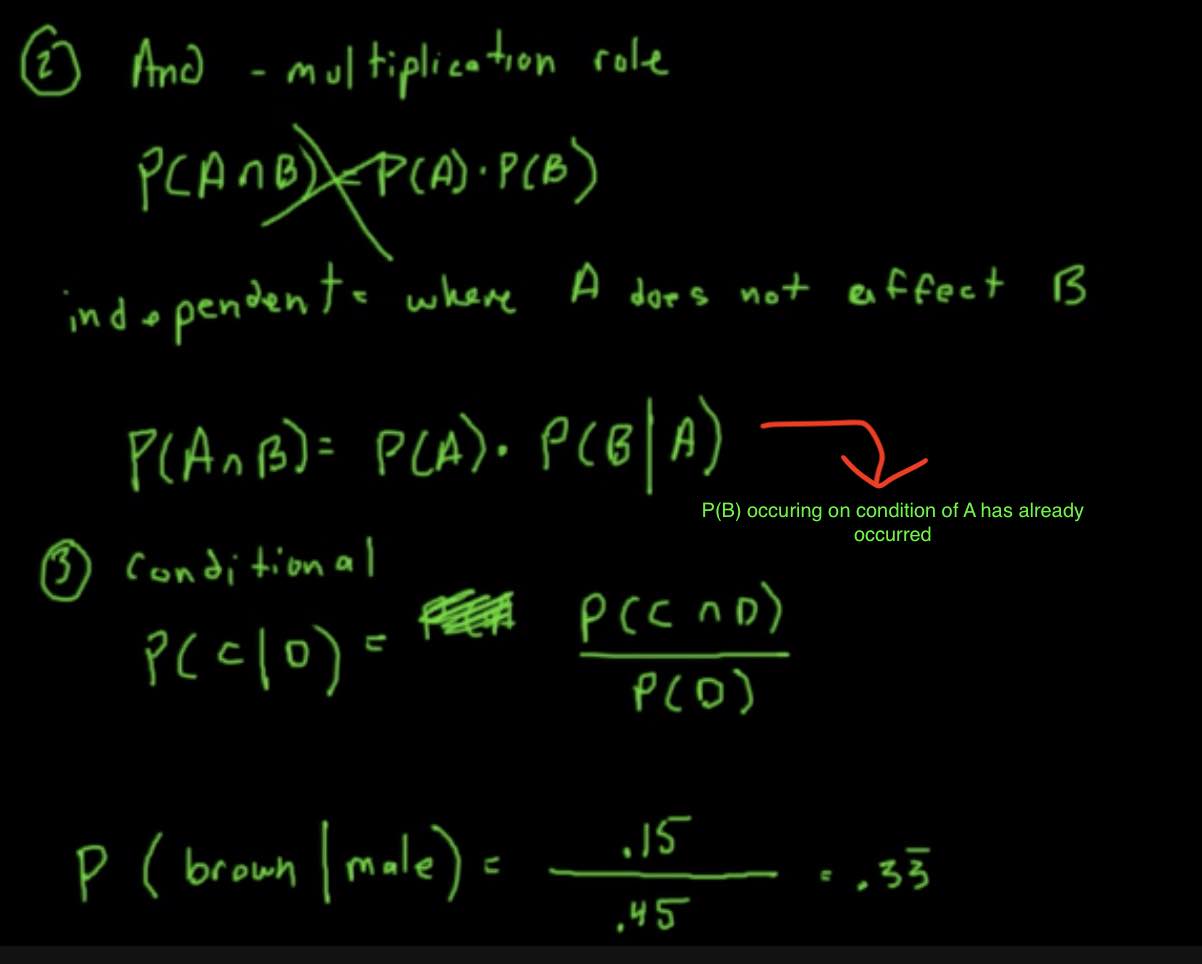 ② And - multiplication role
P(A ∩ B) = P(A) · P(B)
independent = where A does not effect B
P(A ∩ B) = P(A) · P(B|A)
P(B) occuring on condition of A has already
occurred
③ Conditional
P(C|D) = P(C ∩ D) / P(D)
P (brown | male) = .15 / .45 = .33̅